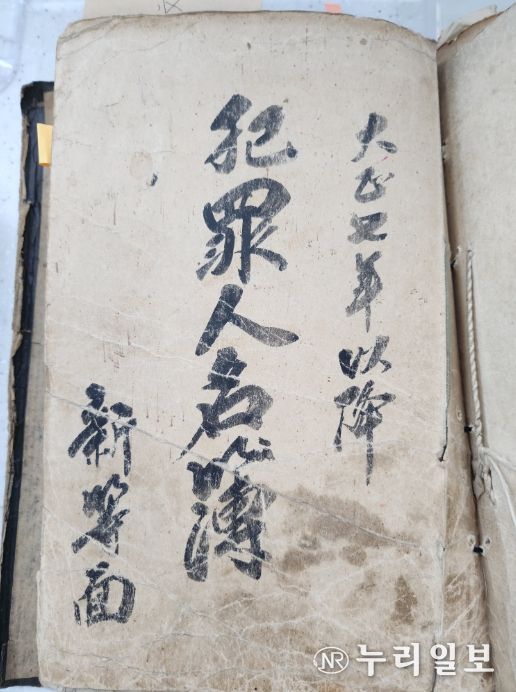 大正七年以降
犯罪人名簿
新等面
NR 누리일보